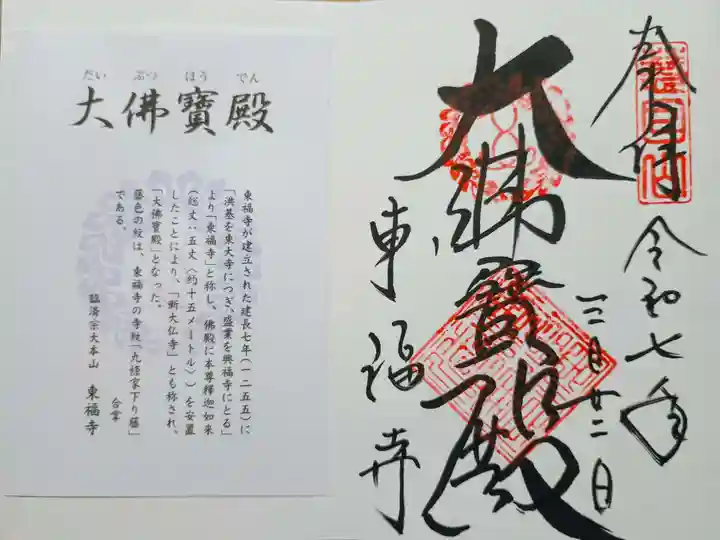 だい ぶつ ほう でん
大佛寳殿
東福寺が建立された建長七年(一二五五)に
「洪基を東大寺につぎ、盛業を興福寺にとる」
より「東福寺」と称し、佛殿に本尊釋迦如来
(総丈:五丈〈約十五メートル〉)を安置
したことにより、「新大仏寺」とも称され、
「大佛寳殿」となった。
藤色の紋は、東福寺の寺紋「九條家下り藤」
である。
合掌
臨済宗大本山 東福寺
奉拝
令和七年
三月廿二日
大佛寳殿
東福寺